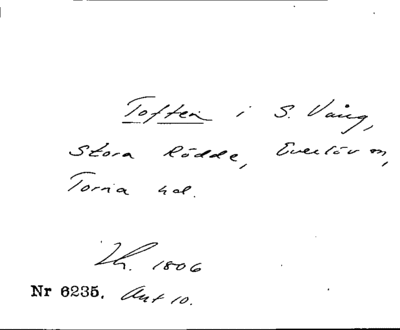 Toften i S. Vång,
Stora Rödde, Everlöv sn,
Torna hd.
1806
Nr 6235. Akt 10.